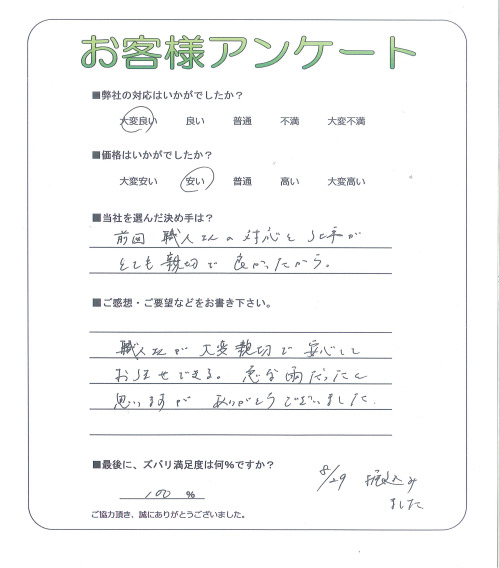 お客様アンケート
■弊社の対応はいかがでしたか？
大変良い 良い 普通 不満 大変不満
■価格はいかがでしたか？
大変安い 安い 普通 高い 大変高い
■当社を選んだ決め手は？
前回 職人さんの対応と 上手が
とても親切で良かったから。
■ご感想・ご要望などをお書き下さい。
職人さんが大変親切で安心して
お任せできる。急な雨だったと
思いますが ありがとうございました。
■最後に、ズバリ満足度は何%ですか？
100 %
8/29 振込み
ました
ご協力頂き、誠にありがとうございました。